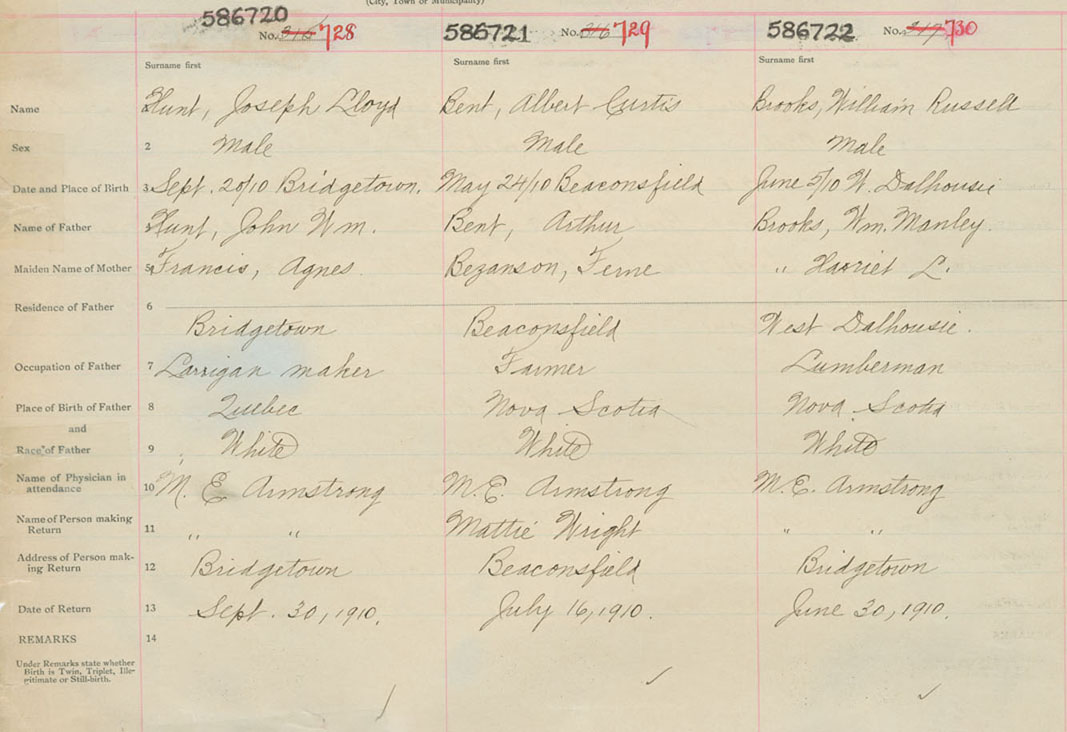 (City, Town or Municipality)
586720 No. 315 728 586721 No. 316 729 586722 No. 317 730
Surname first Surname first Surname first
Name Hunt, Joseph Lloyd Bent, Albert Curtis Brooks, William Russell
Sex 2 Male Male Male
Date and Place of Birth 3 Sept. 20/10 Bridgetown. May 24/10 Beaconsfield June 5/10 W. Dalhousie
Name of Father Hunt, John Wm. Bent, Arthur Brooks, Wm. Manley.
Maiden Name of Mother 5 Francis, Agnes. Bezanson, Ferne " Harriet L.
Residence of Father 6
Bridgetown Beaconsfield West Dalhousie.
Occupation of Father 7 Larrigan maker Farmer Lumberman
Place of Birth of Father 8 Quebec Nova Scotia Nova Scotia
and
Race of Father 9 White White White
Name of Physician in
attendance 10 M. E. Armstrong M. E. Armstrong M. E. Armstrong
Name of Person making
Return 11 " " Mattie Wright " "
Address of Person mak-
ing Return 12 Bridgetown Beaconsfield Bridgetown
Date of Return 13 Sept. 30, 1910. July 16, 1910. June 30, 1910.
REMARKS 14
Under Remarks state whether
Birth is Twin, Triplet, Ille-
gitimate or Still-birth.